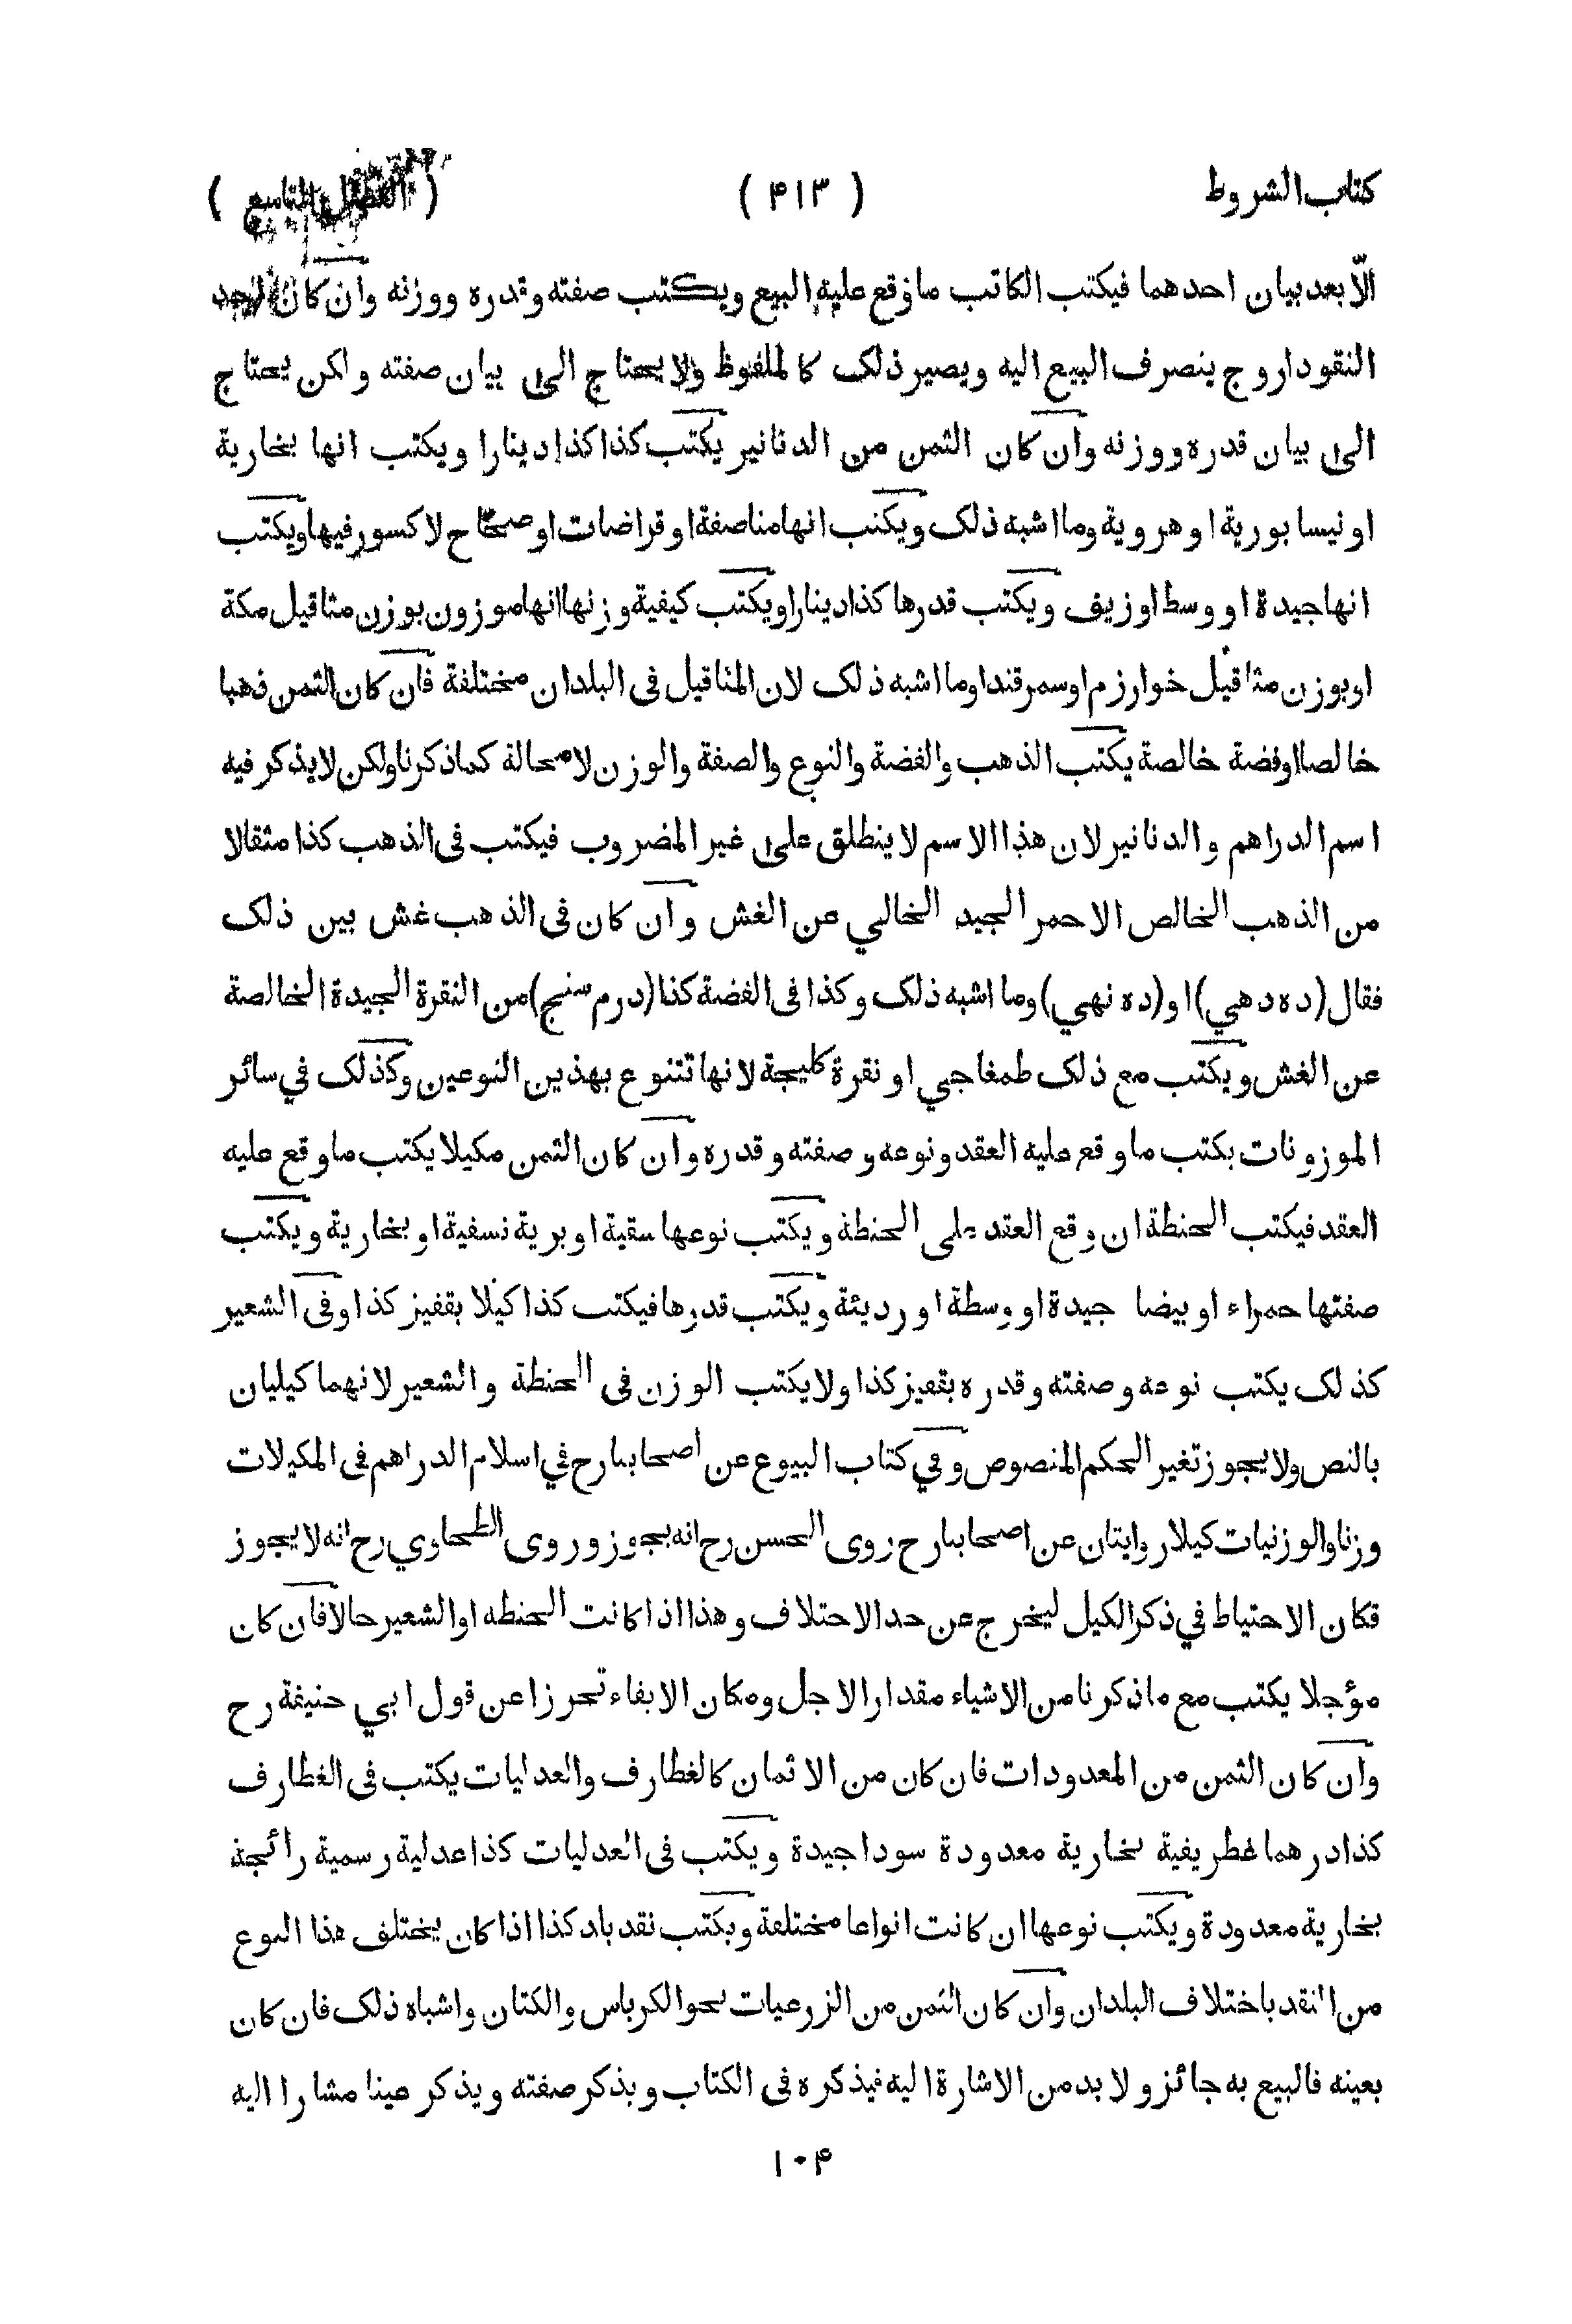 كتاب الشروط ( ۴۱۳ ) ( الفصل التاسع )
الّا بعد بيان احدهما فيكتب الكاتب ما وقع عليه البيع ويكتب صفته وقدره ووزنه وان كان احد
النقود اروج ينصرف البيع اليه ويصير ذلك كالملفوظ ولا يحتاج الى بيان صفته ولكن يحتاج
الى بيان قدره ووزنه وان كان الثمن من الدنانير يكتب كذا كذا دينارا ويكتب انها بخارية
او نيسابورية او هروية وما اشبه ذلك ويكتب انها مناصفة او قراضات او صحاح لا كسور فيها ويكتب
انها جيدة او وسط او زيف ويكتب قدرها كذا دينارا ويكتب كيفية وزنها انها موزون بوزن مثاقيل مكة
او بوزن مثاقيل خوارزم او سمرقند او ما اشبه ذلك لان المثاقيل فى البلدان مختلفة فان كان الثمن ذهبا
خالصا او فضة خالصة يكتب الذهب والفضة والنوع والصفة والوزن لا محالة كما ذكرنا ولكن لا يذكر فيه
اسم الدراهم والدنانير لان هذا الاسم لا ينطلق على غير المضروب فيكتب فى الذهب كذا مثقالا
من الذهب الخالص الاحمر الجيد الخالي عن الغش وان كان فى الذهب غش بين ذلك
فقال (ده دهي) او (ده نهي) وما اشبه ذلك وكذا فى الفضة كذا (درم سنج) من النقرة الجيدة الخالصة
عن الغش ويكتب مع ذلك طمغاجي او نقرة كليجة لانها تتنوع بهذين النوعين وكذلك في سائر
الموزونات يكتب ما وقع عليه العقد ونوعه وصفته وقدره وان كان الثمن مكيلا يكتب ما وقع عليه
العقد فيكتب الحنطة ان وقع العقد على الحنطة ويكتب نوعها سقية او برية نسفية او بخارية ويكتب
صفتها حمراء او بيضا جيدة او وسطة او رديئة ويكتب قدرها فيكتب كذا كيلا بقفيز كذا وفى الشعير
كذلك يكتب نوعه وصفته وقدره بقفيز كذا ولا يكتب الوزن فى الحنطة والشعير لانهما كيليان
بالنص ولا يجوز تغير الحكم المنصوص وفي كتاب البيوع عن اصحابنا رح في اسلام الدراهم فى المكيلات
وزنا والوزنيات كيلا روايتان عن اصحابنا رح روى الحسن رح انه يجوز وروى الطحاوي رح انه لا يجوز
فكان الاحتياط في ذكر الكيل ليخرج عن حد الاختلاف وهذا اذا كانت الحنطه او الشعير حالا فان كان
مؤجلا يكتب مع ما ذكرنا من الاشياء مقدار الاجل ومكان الايفاء تحرزا عن قول ابي حنيفة رح
وان كان الثمن من المعدودات فان كان من الاثمان كالغطارف والعدليات يكتب فى الغطارف
كذا درهما غطريفية بخارية معدودة سودا جيدة ويكتب فى العدليات كذا عدلية رسمية رائجة
بخارية معدودة ويكتب نوعها ان كانت انواعا مختلفة ويكتب نقد بلد كذا اذا كان يختلف هذا النوع
من النقد باختلاف البلدان وان كان الثمن من الزرعيات نحو الكرباس والكتان واشباه ذلك فان كان
بعينه فالبيع به جائز ولا بد من الاشارة اليه فيذكره فى الكتاب ويذكر صفته ويذكر عينا مشارا اليه
۱۰۴